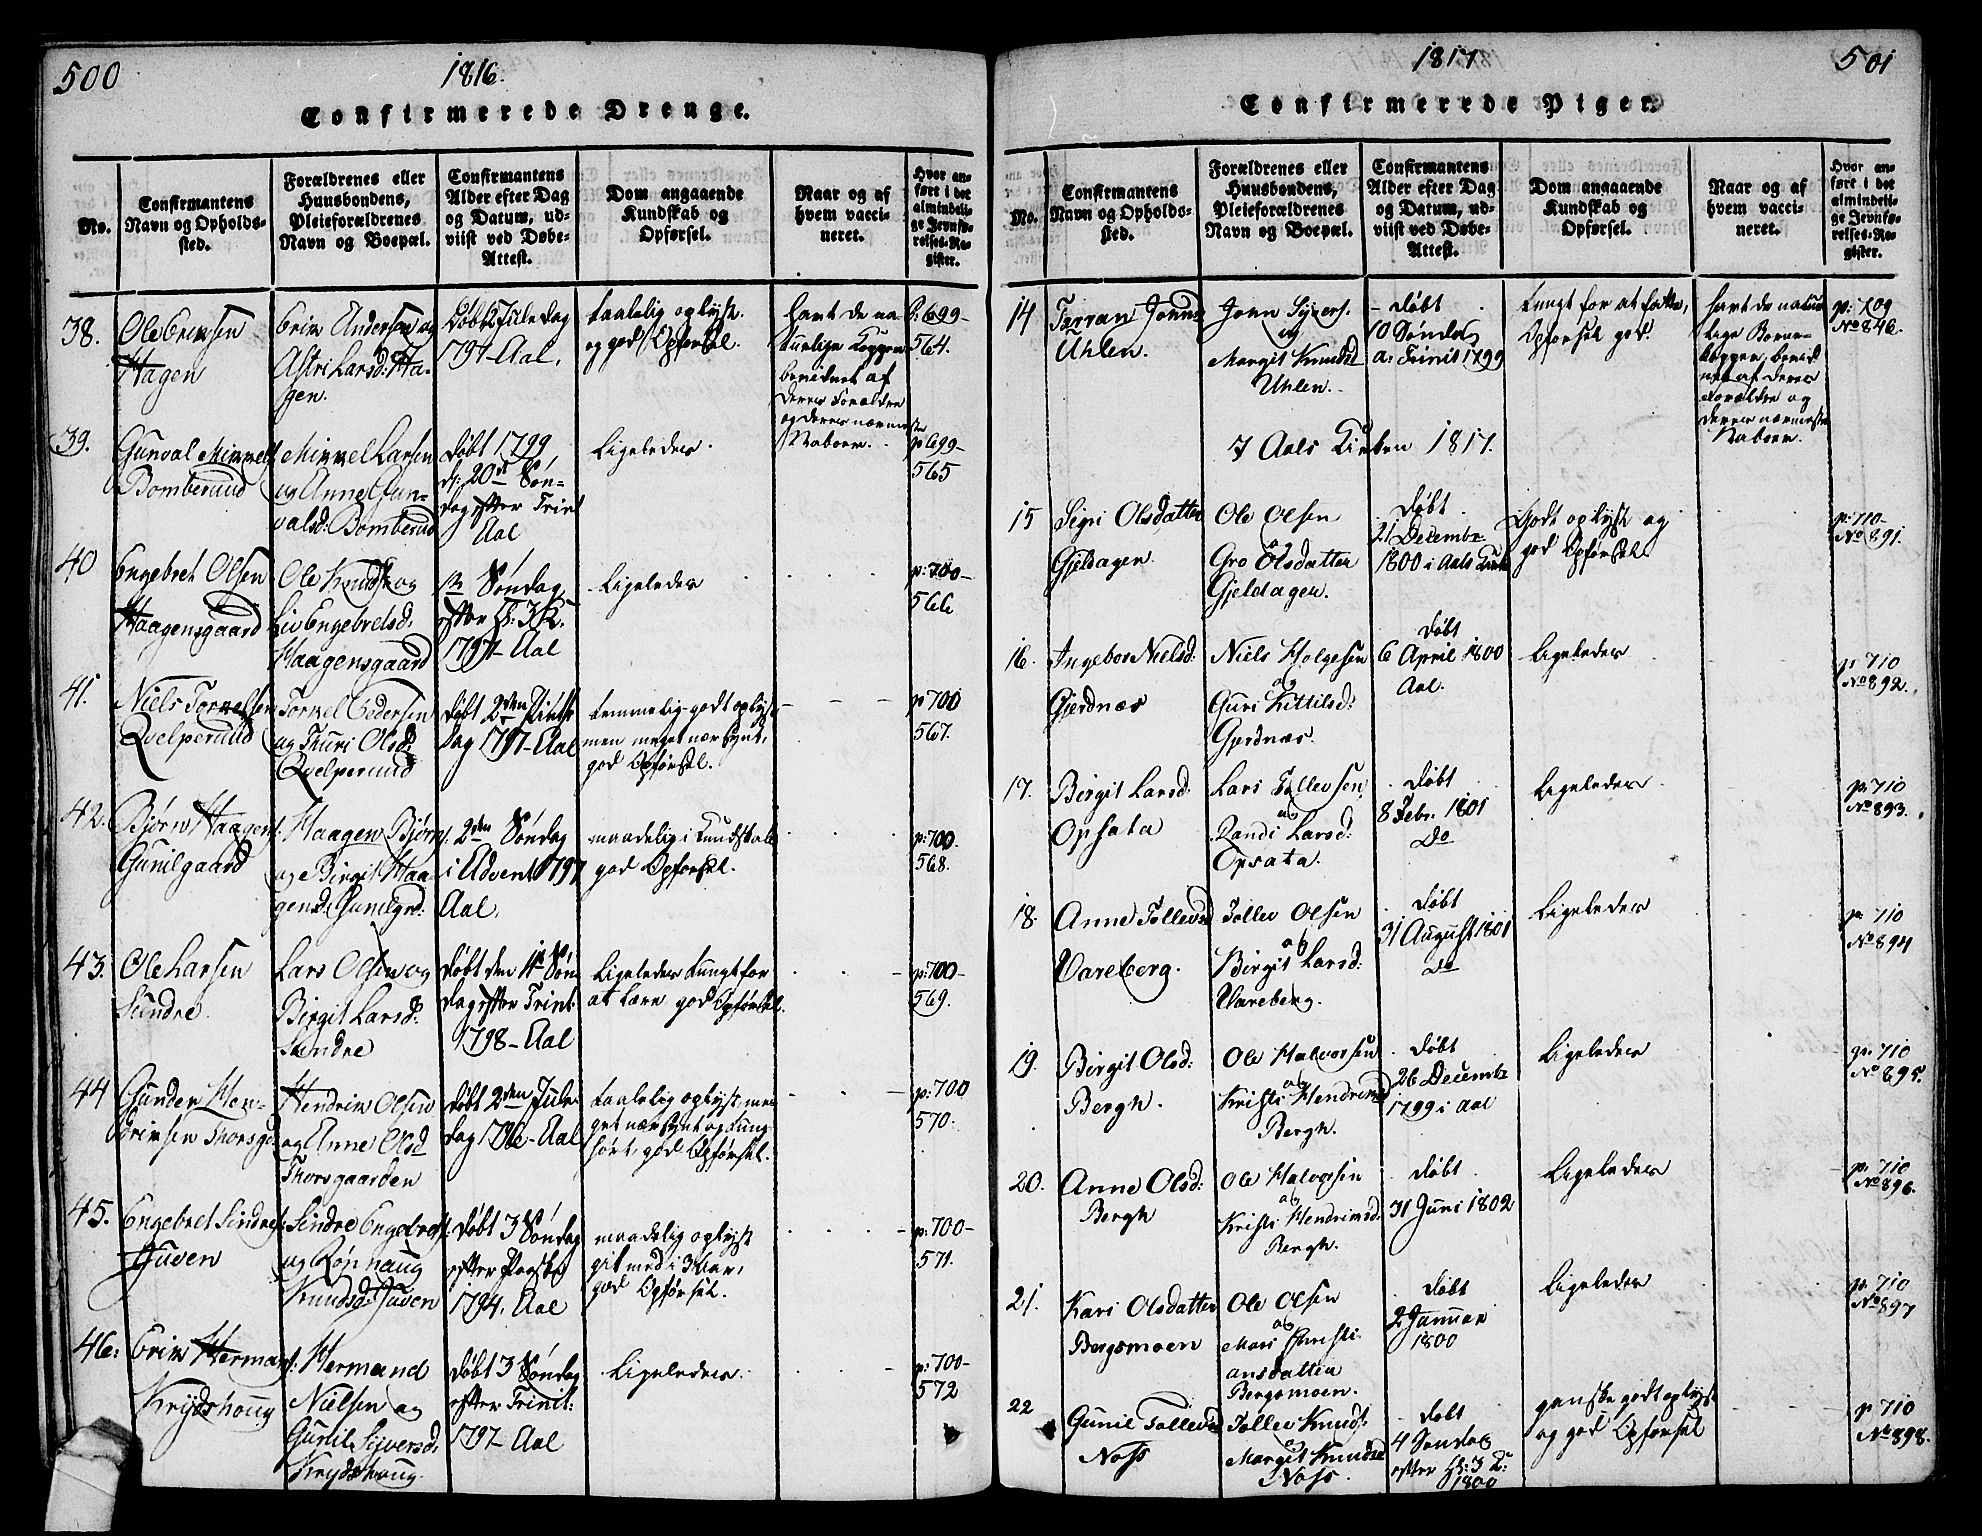 500
1816.
Confirmerede Drenge.
No.
Confirmantens
Navn og Opholds-
sted.
Forældrenes eller
Huusbondens,
Pleieforældrenes
Navn og Boepæl.
Confirmantens
Alder efter Dag
og Datum, ud-
viist ved Døbe-
Attest.
Dom angaaende
Kundskab og
Opførsel.
Naar og af
hvem vacci-
neret.
Hvor an-
ført i det
almindeli-
ge Jevnfø-
relses-Re-
gister.
38.
Ole Erixsen
Hagen
Erix Andersen og
Astri Larsd: Ha-
gen.
Døbt 2 Juledag
1797 Aal.
taalelig oplyst.
og god Opførsel.
havt de na-
turlige Kopper
bevidnet af
deres Forældre
og deres nærmeste
Naboer.
p. 699-
564.
39.
Gunval Mikkels:
Bomberuud
Mikkel Larsen
og Anne Gun-
valsd: Bomberud
Døbt 1799
d: 20de Søn-
dag efter Trinit
Aal
Ligeledes.
p 699-
565
40
Engebret Olsen
Haagensgaard
Ole Knuds: og
Liv Engebretsd.
Haagensgaard
1ste Søndag
efter H: 3 K.
1797- Aal
Ligeledes
p: 700-
566
41.
Niels Torkelsen
Qvelperuud
Torkel Pedersen
og Thuri Olsd:
Qvelperuud
Døbt 2den Pintse
Dag 1797- Aal
temmelig godt oplyst
men meget nærsynt,
god Opførsel.
p 700
567.
42.
Bjørn Haagens:
Gunilgaard
Haagen Bjørns.
og Birgit Haa-
gensd: Gunilgrd:
2den Søndag
i Advent 1797
Aal.
maadelig i Kundskab
god Opførsel.
p: 700.
568.
43.
Ole Larsen
Sundre.
Lars Olsen og
Birgit Larsd:
Sundre
Døbt den 11te Søn
dag efter Trinit.
1798- Aal
Ligeledes tungt for
at lære god Opførsel.
p: 700-
569.
44
Gunder Hen-
drixsen Thorsgrd
Hendrix Olsen
og Anne Olsd
Thorsgaarden
Døbt 2den Jule
Dag 1796- Aal
taalelig oplyst, me-
get nærsynt og tung
hørt, god Opførsel.
p: 700
570.
45.
Engebret Sindres:
Tuven
Sindre Engebrets.
og Rønnaug
Knudsd: Tuven
Døbt 3 Søndag
efter Paaske
1794. Aal
maadelig oplyst
git med i 3 Aar,
god Opførsel.
p: 700-
571.
46.
Erix Hermans:
Krydshoug
Hermand
Nielsen og
Gunil Siversd.
Krydshoug.
Døbt 3 Søndag
efter Trinit:
1797- Aal
Ligeledes.
p: 700-
572
1817
501
Confirmerede Piger.
No.
Confirmantens
Navn og Opholds-
sted.
Forældrenes eller
Huusbondens,
Pleieforældrenes
Navn og Boepæl.
Confirmantens
Alder efter Dag
og Datum, ud-
viist ved Døbe-
Attest.
Dom angaaende
Kundskab og
Opførsel.
Naar og af
hvem vacci-
neret.
Hvor an-
ført i det
almindeli-
ge Jevnfø-
relses-Re-
gister.
14
Uhlen.
og
Margit Knudsd
Uhlen.
Døbt
10 Søndag
a: Trinit 1799
tungt for at fatte,
Opførsel god.
havt de natur
lige Børne-
kopper, bevid
net af deres
Forældre og
deres nærmeste
Naboer.
p: 709
No 846.
I Aals Kirken 1817.
15
Sigri Olsdatter
Gjeldagen.
Ole Olsen
og
Gro Olsdatter
Gjeldagen.
Døbt
21 Decembr
1800 i Aals Kirke
Godt oplyst og
god Opførsel.
p: 710-
No 891.
16.
Ingebor Nielsd:
Gjerdnæs
Niels Holgesen
og
Guri Kittilsd:
Gjerdnæs.
Døbt
6 April 1800
Aal.
Ligeledes
p. 710
No 892.
17.
Birgit Larsd:
Opsata
Lars Tollevsen
og
Randi Larsd:
Opsata.
Døbt
8 Febr. 1801
Do
Ligeledes
p: 710
No 893.
18.
Anne Tollevsd
Vareberg.
Tollev Olsen
og
Birgit Larsd:
Vareberg.
Døbt
31 August 1801
Do
Ligeledes
p: 710
No 894
19.
Birgit Olsd:
Bergh.
Ole Halvorsen
og
Kristi Hendrixsd
Bergh.
Døbt
26 Decembr
1799 i Aal
Ligeledes
p: 710
No 895.
20.
Anne Olsd:
Bergh
Ole Halvorsen
og
Kristi Hendrixsd.
Bergh.
Døbt
31 Juni 1802
Ligeledes
p. 710
No 896.
21.
Kari Olsdatter
Bergsmoen
Ole Olsen
og
Mari Christi-
ansdatter
Bergsmoen.
Døbt
2 Januar
1800
Ligeledes
p. 710
No 897
22
Gunil Tollevsd
Noss
Tollev Knuds:
og
Margit Knudsd
Noss.
Døbt
4 Søndag
efter H: 3 K:
1800
ganske godt oplyst
og god Opførsel
p 710
No 898.